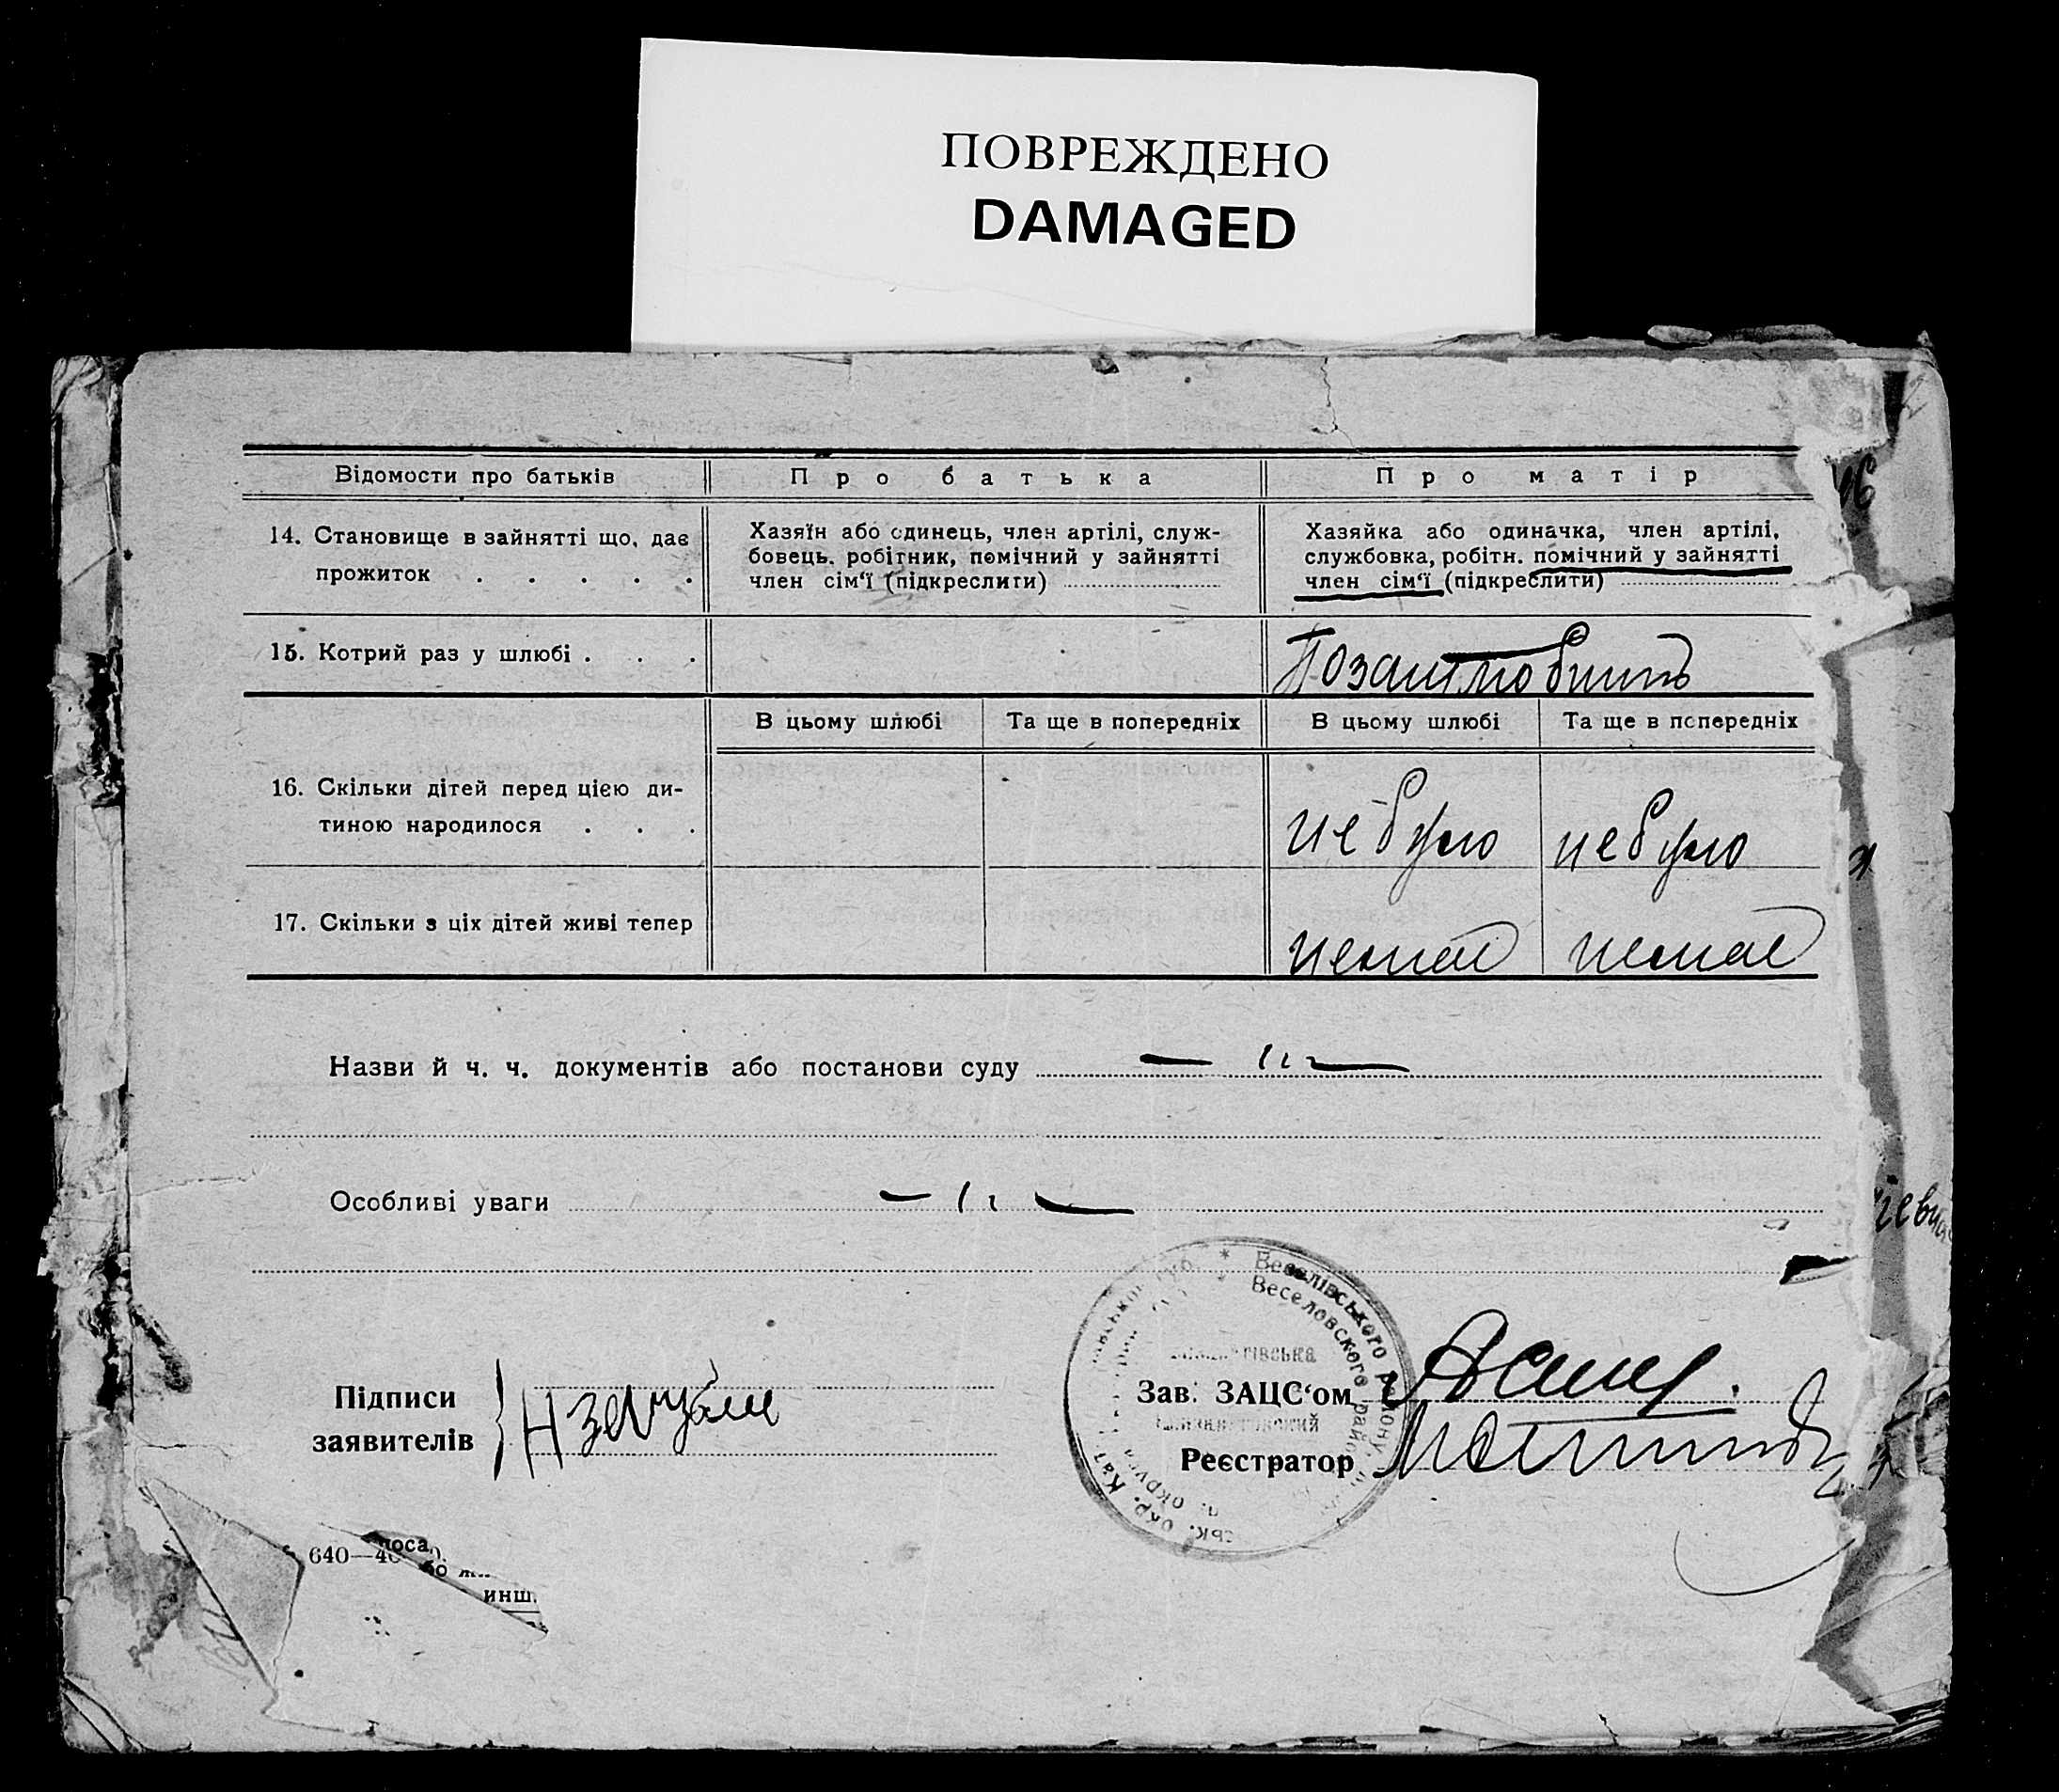 ПОВРЕЖДЕНО
DAMAGED
Відомости про батьків
Про батька
Про матір
14. Становище в зайнятті що, дає
прожиток . . . . .
Хазяїн або одинець, член артілі, служ-
бовець, робітник, помічний у зайнятті
член сім‘ї (підкреслити)
Хазяйка або одиначка, член артілі,
службовка, робітн. помічний у зайнятті
член сім‘ї (підкреслити)
15. Котрий раз у шлюбі . . .
Позашлюбний
В цьому шлюбі
Та ще в попередніх
В цьому шлюбі
Та ще в попередніх
16. Скільки дітей перед цією ди-
тиною народилося . . .
не було
не було
17. Скільки з ціх дітей живі тепер
немає
немає
Назви й ч. ч. документів або постанови суду
Особливі уваги
* Веселівського району
* Веселовского райо
Підписи
заявителів
Зав. ЗАЦС‘ом
Реєстратор
ськ. окр. Кат
округа
640—40
инш.